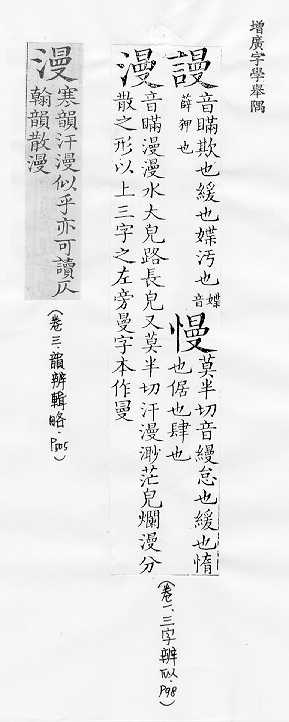 增廣字學舉隅
謾音瞞欺也緩也媟汚也媟音
薛狎也
慢莫半切音縵怠也緩也惰
也倨也肆也
漫音瞞漫漫水大皃路長皃又莫半切汗漫渺茫皃爛漫分
散之形以上三字之左旁曼字本作㬅
(卷一.三字辨似.P98)
漫寒韻汗漫似乎亦可讀仄
翰韻散漫
(卷三.韻辨輯略.P205)